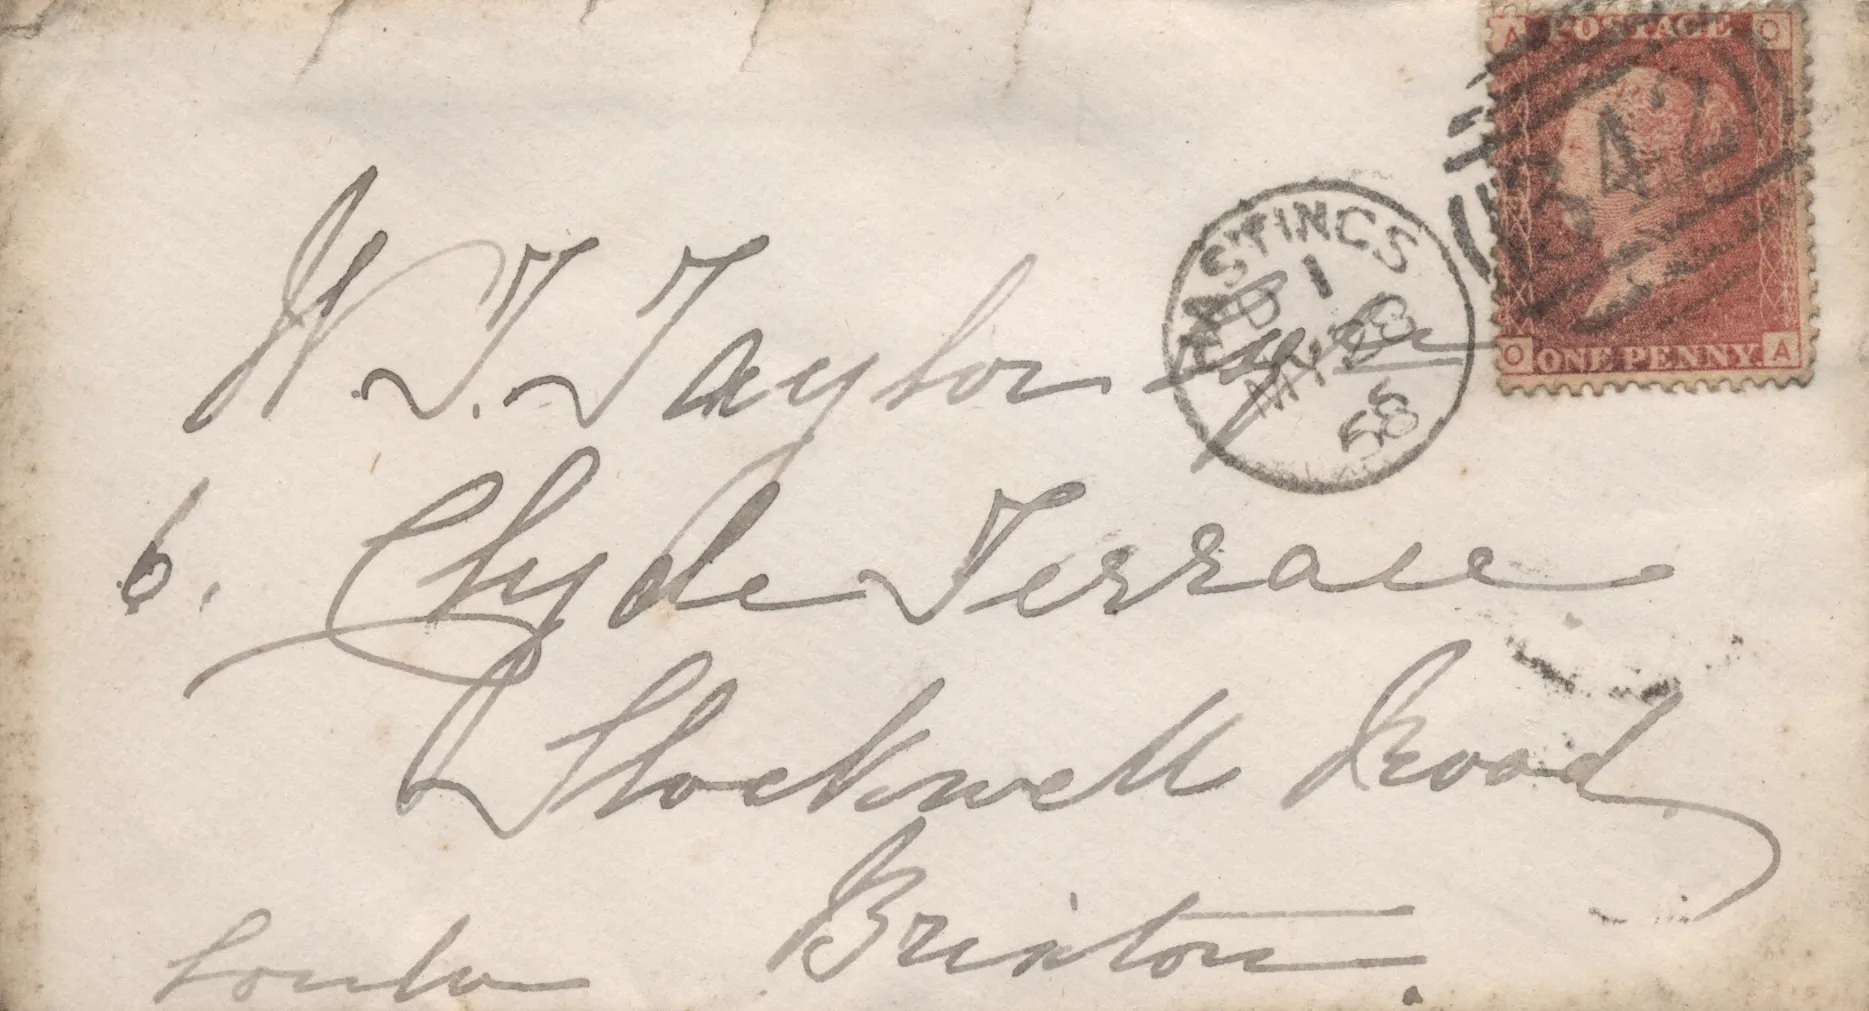 A POSTAGE O
342
O ONE PENNY. A
HASTINGS
B 1
MY 28
68
W. T. Taylor Junr
6. Clyde Terrace
Stockwell Road
Brixton.
London